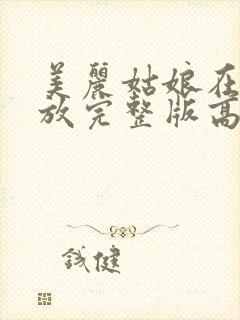 美麗姑娘在
放完整版高
鐵健